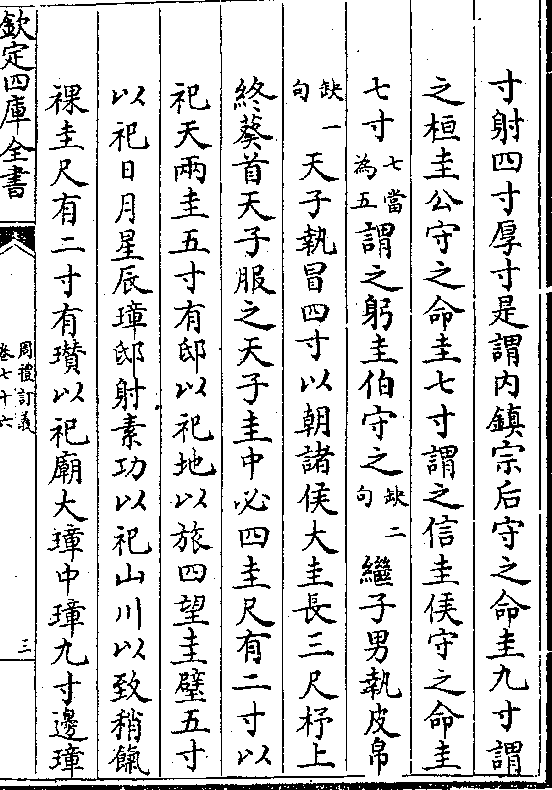 寸射四寸厚寸是謂内鎮宗后守之命圭九寸謂
之桓圭公守之命圭七寸謂之信圭侯守之命圭
七寸七當為五謂之躬圭伯守之缺二句繼子男執皮帛
缺一句天子執冒四寸以朝諸侯大圭長三尺杼上
終葵首天子服之天子圭中必四圭尺有二寸以
祀天兩圭五寸有邸以祀地以旅四望圭璧五寸
以祀日月星辰璋邸射素功以祀山川以致稍餼
祼圭尺有二寸有瓚以祀廟大璋中璋九寸邊璋
欽定四庫全書
周禮訂義
卷七十六
三